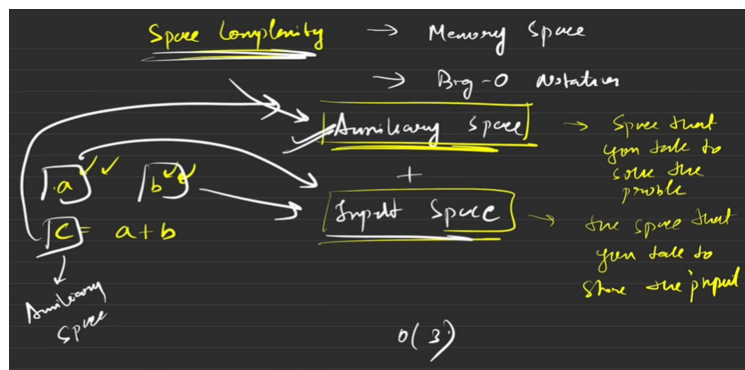 Space Complexity → Memory Space
→ Big-O Notation
Auxiliary Space → Space that
you take to
solve the
proble
+
a b
Input Space → the space that
you take to
store the input
c = a+b
Auxiliary
Space
O(3)